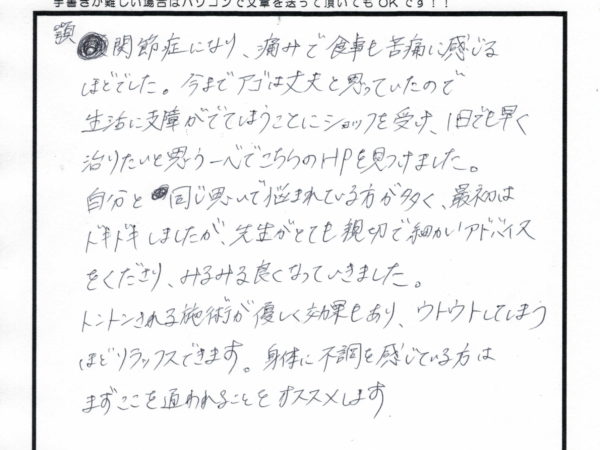 手書きが難しい場合はパソコンで文章を送って頂いてもOKです！！
顎関節症になり、痛みで食事も苦痛に感じる
ほどでした。今までアゴは丈夫と思っていたので
生活に支障がでてしまうことにショックを受け、1日でも早く
治りたいと思う一心でこちらのHPを見つけました。
自分と同じ思いで悩まれている方が多く、最初は
ドキドキしましたが、先生がとても親切で細かいアドバイス
をくださり、みるみる良くなっていきました。
トントンされる施術が優しく効果もあり、ウトウトしてしまう
ほどリラックスできます。身体に不調を感じている方は
まずここを通われることをオススメします